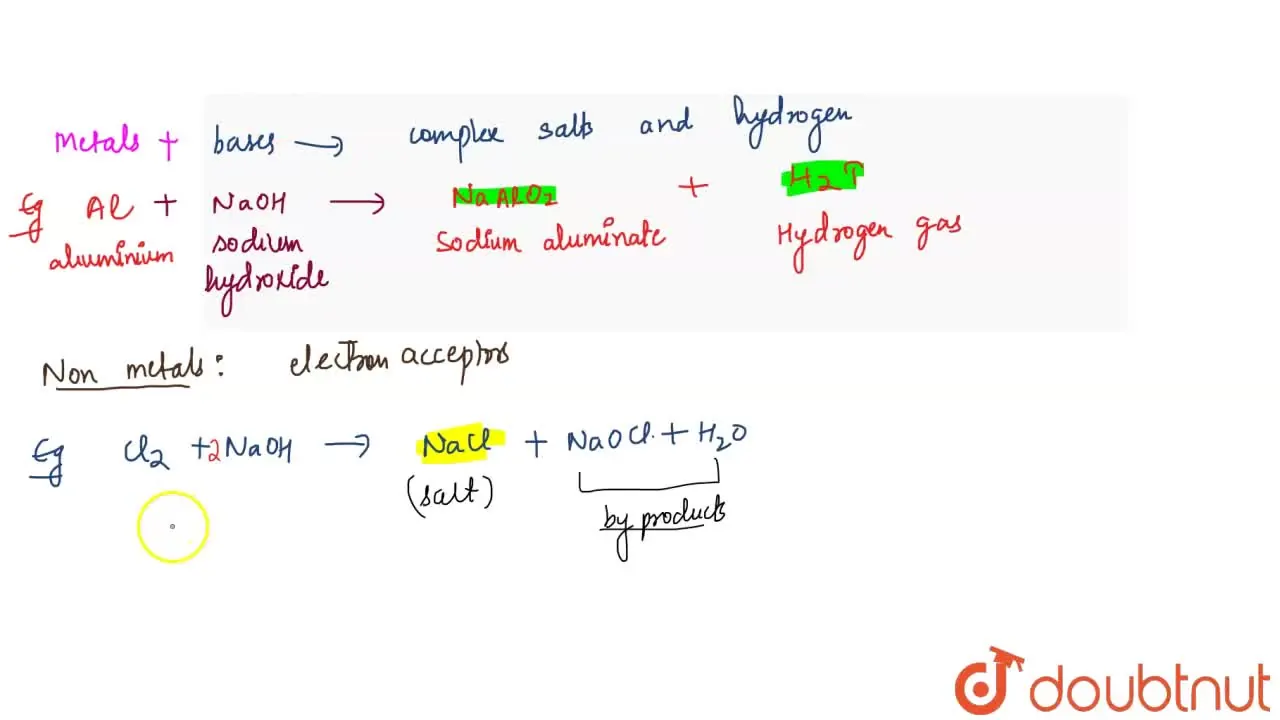 Metals + bases → complex salts and hydrogen
Eg Al + NaOH → NaAlO2 + H2↑
aluminium sodium hydroxide Sodium aluminate Hydrogen gas
Non metals: electron acceptors
Eg Cl2 + 2NaOH → NaCl + NaOCl + H2O
(salt) by products
doubtnut